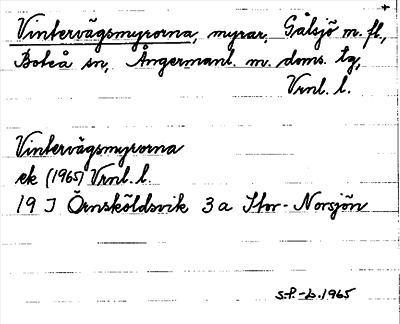 Vintervägsmyrorna, myrar, Gålsjö m. fl.,
Boteå sn, Ångermanl. m. doms. lg,
Vrnl. l.
Vintervägsmyrorna
ek (1965) Vrnl. l.
19 J Örnsköldsvik 3a Stor-Norsjön
S.P.-b.1965